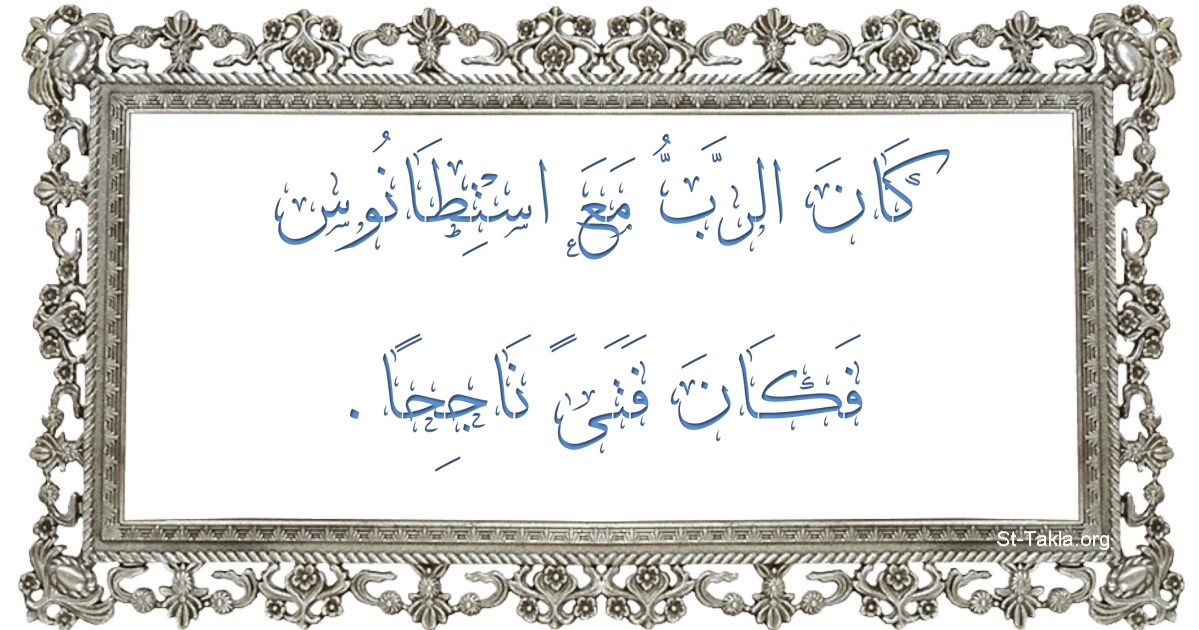 كَانَ الرَّبُّ مَعَ اسْتِطَانُوس
فَكَانَ فَتَىً نَاجِحًا .
St-Takla.org